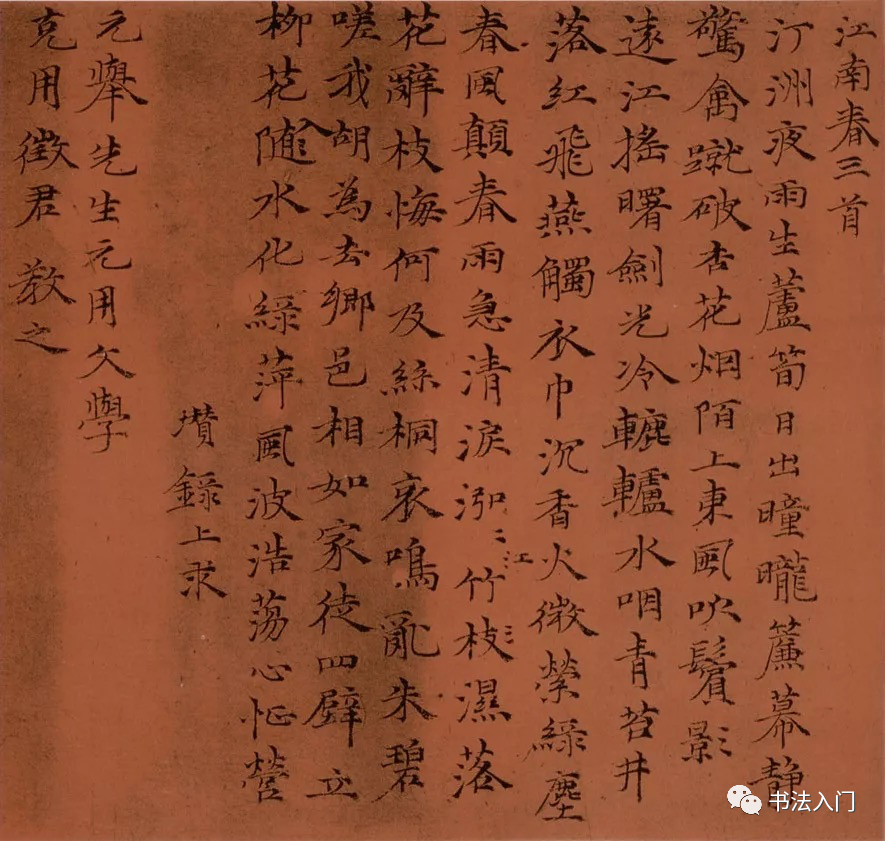 江南春三首
汀洲夜雨生蘆筍日出曈曨簾幕靜
驚禽蹴破杏花烟陌上東風吹鬢影
遠江搖曙劍光冷轆轤水咽青苔井
落紅飛燕觸衣巾沉香火微縈綠塵
春風顛春雨急清淚泓〻江竹枝濕落
花辭枝悔何及絲桐哀鳴亂朱碧
嗟我胡為去鄉邑相如家徒四壁立
柳花隨水化綠萍風波浩蕩心怔營
瓚錄上求
元舉先生元用文學
克用徵君教之
书法入门